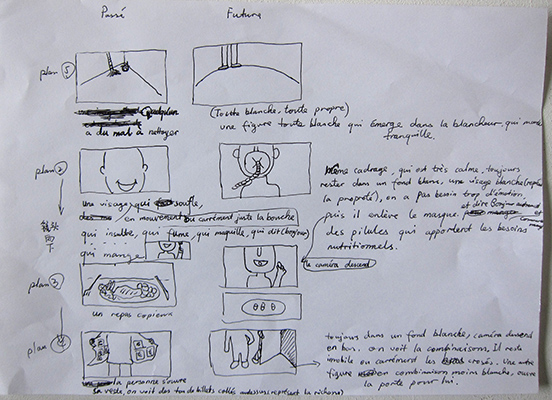 Passé
Future
plan ①
a du mal à nettoyer
(Toute blanche, toute propre)
une figure toute blanche qui émerge dans la blancheur, qui marche
tranquille.
plan ②
une visage, qui souffle,
en mouvement ou carrément juste la bouche
qui insulte, qui fume, qui maquille, qui dit (bonjour)
qui mange
même cadrage, qui est très calme, toujours
rester dans un fond blanc, une visage blanche
la propreté), on a pas besoin trop d'émotion
et dire Bonjour
puis il enlève le masque.
des pilules qui apportent les besoins
nutritionnels.
镜头
向下
la caméra descend
plan ③
un repas copieux
plan ④
la personne s'ouvre
sa veste, on voit des tas de billets collés au dessus, représent la richesse)
toujours dans un fond blanche, caméra descend
en bas. on voit la combinaison. Il reste
immobile ou carrément les crosés. Une autre
figure en combinaison moins blanche, ouvre
la porte pour lui.